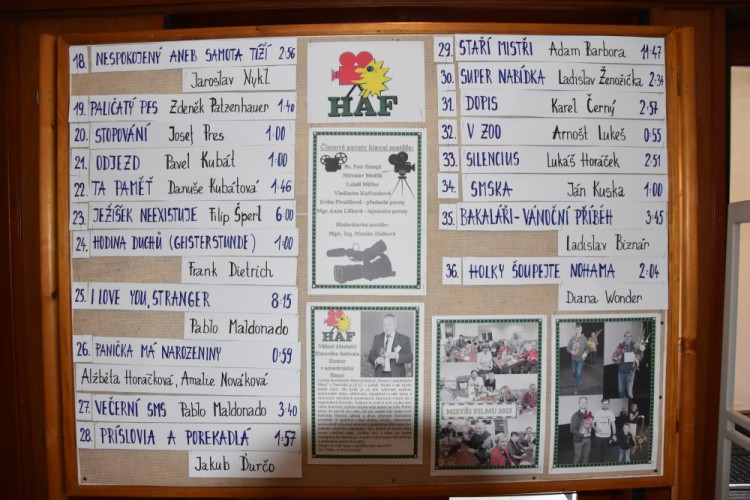 18. NESPOKOJENÝ ANEB SAMOTA TÍŽÍ 2:56
Jaroslav Nykl
19. PALIČATÝ PES Zdeněk Patzenhauer 1:40
20. STOPOVÁNÍ Josef Pres 1:00
21. ODJEZD Pavel Kubát 1:00
22. TA PAMĚŤ Danuše Kubátová 1:46
23. JEŽÍŠEK NEEXISTUJE Filip Šperl 6:00
24. HODINA DUCHŮ (GEISTERSTUNDE) 1:00
Frank Dietrich
25. I LOVE YOU, STRANGER 8:15
Pablo Maldonado
26. PANIČKA MÁ NAROZENINY 0:59
Alžběta Horáčková, Amálie Nováková
27. VEČERNÍ SMS Pablo Maldonado 3:40
28. PŘÍSLOVIA A POREKADLÁ 1:57
Jakub Ďurčo
HAF
Členové poroty hlavní soutěže:
Bc. Petr Hampl
Miroslav Medřík
Lukáš Müller
Květa Pivoňková - předseda poroty
Mgr. Anna Lišková - tajemnice poroty
Moderátorka soutěže:
Mgr. Ing. Monika Hašková
HAF
Vážení účastníci
filmového festivalu
Humor
v amatérském
filmu!
29. STAŘÍ MISTŘI Adam Barbora 11:47
30. SUPER NABÍDKA Ladislav Ženožička 2:34
31. DOPIS Karel Černý 2:57
32. V ZOO Arnošt Lukeš 0:55
33. SILENCIUS Lukáš Horáček 2:51
34. SMSKA Ján Kuska 1:00
35. BAKALÁŘI - VÁNOČNÍ PŘÍBĚH 3:45
Ladislav Biznár
36. HOLKY ŠOUPEJTE NOHAMA 2:04
Diana Wonder
MISTŘI FILMU 2023